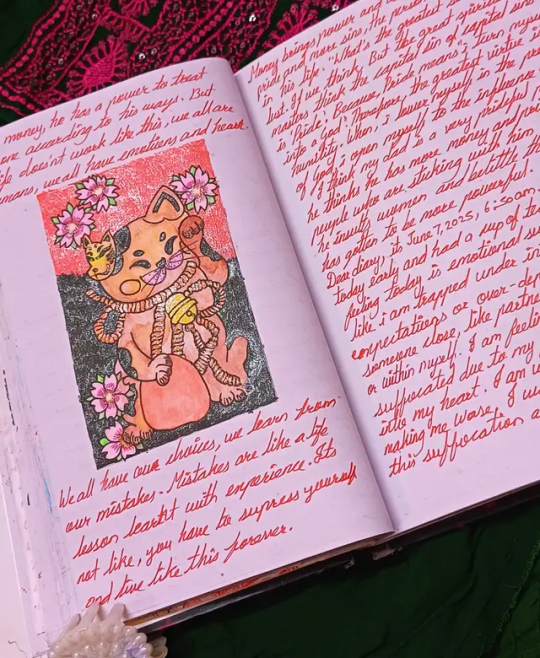 money, he has a power to treat
according to his ways. But
life doesn't work like this, we all are
humans, we all have emotions and heart.
We all have our choices, we learn from
our mistakes. Mistakes are like a life
lesson learnt with experience. Its
not like, you have to supress yourself
and live like this forever.
Money brings power and
pride and more sins. the person
in his life. "What's the greatest
lust. If we think. But the great spiritual
masters think the capital sin of capital sins
is 'Pride'. Because, Pride means 'i turn myself
into a God'. Therefore, the greatest virtue
humility. When, i lower myself in the
of God, i open myself to the influence
I think my dad is a very prideful
he thinks he has more money and
people who are sticking with him
he insults women and belittle
has gotten to be more powerful.
Dear diary, its June 7, 2025, 6:50am.
today early and had a cup of tea
feeling today is emotional
like i am trapped under
expectations or over-
someone close, like partner
or within myself. I am feeling
suffocated due to my
into my heart. I am
making me worse. I
this suffocation